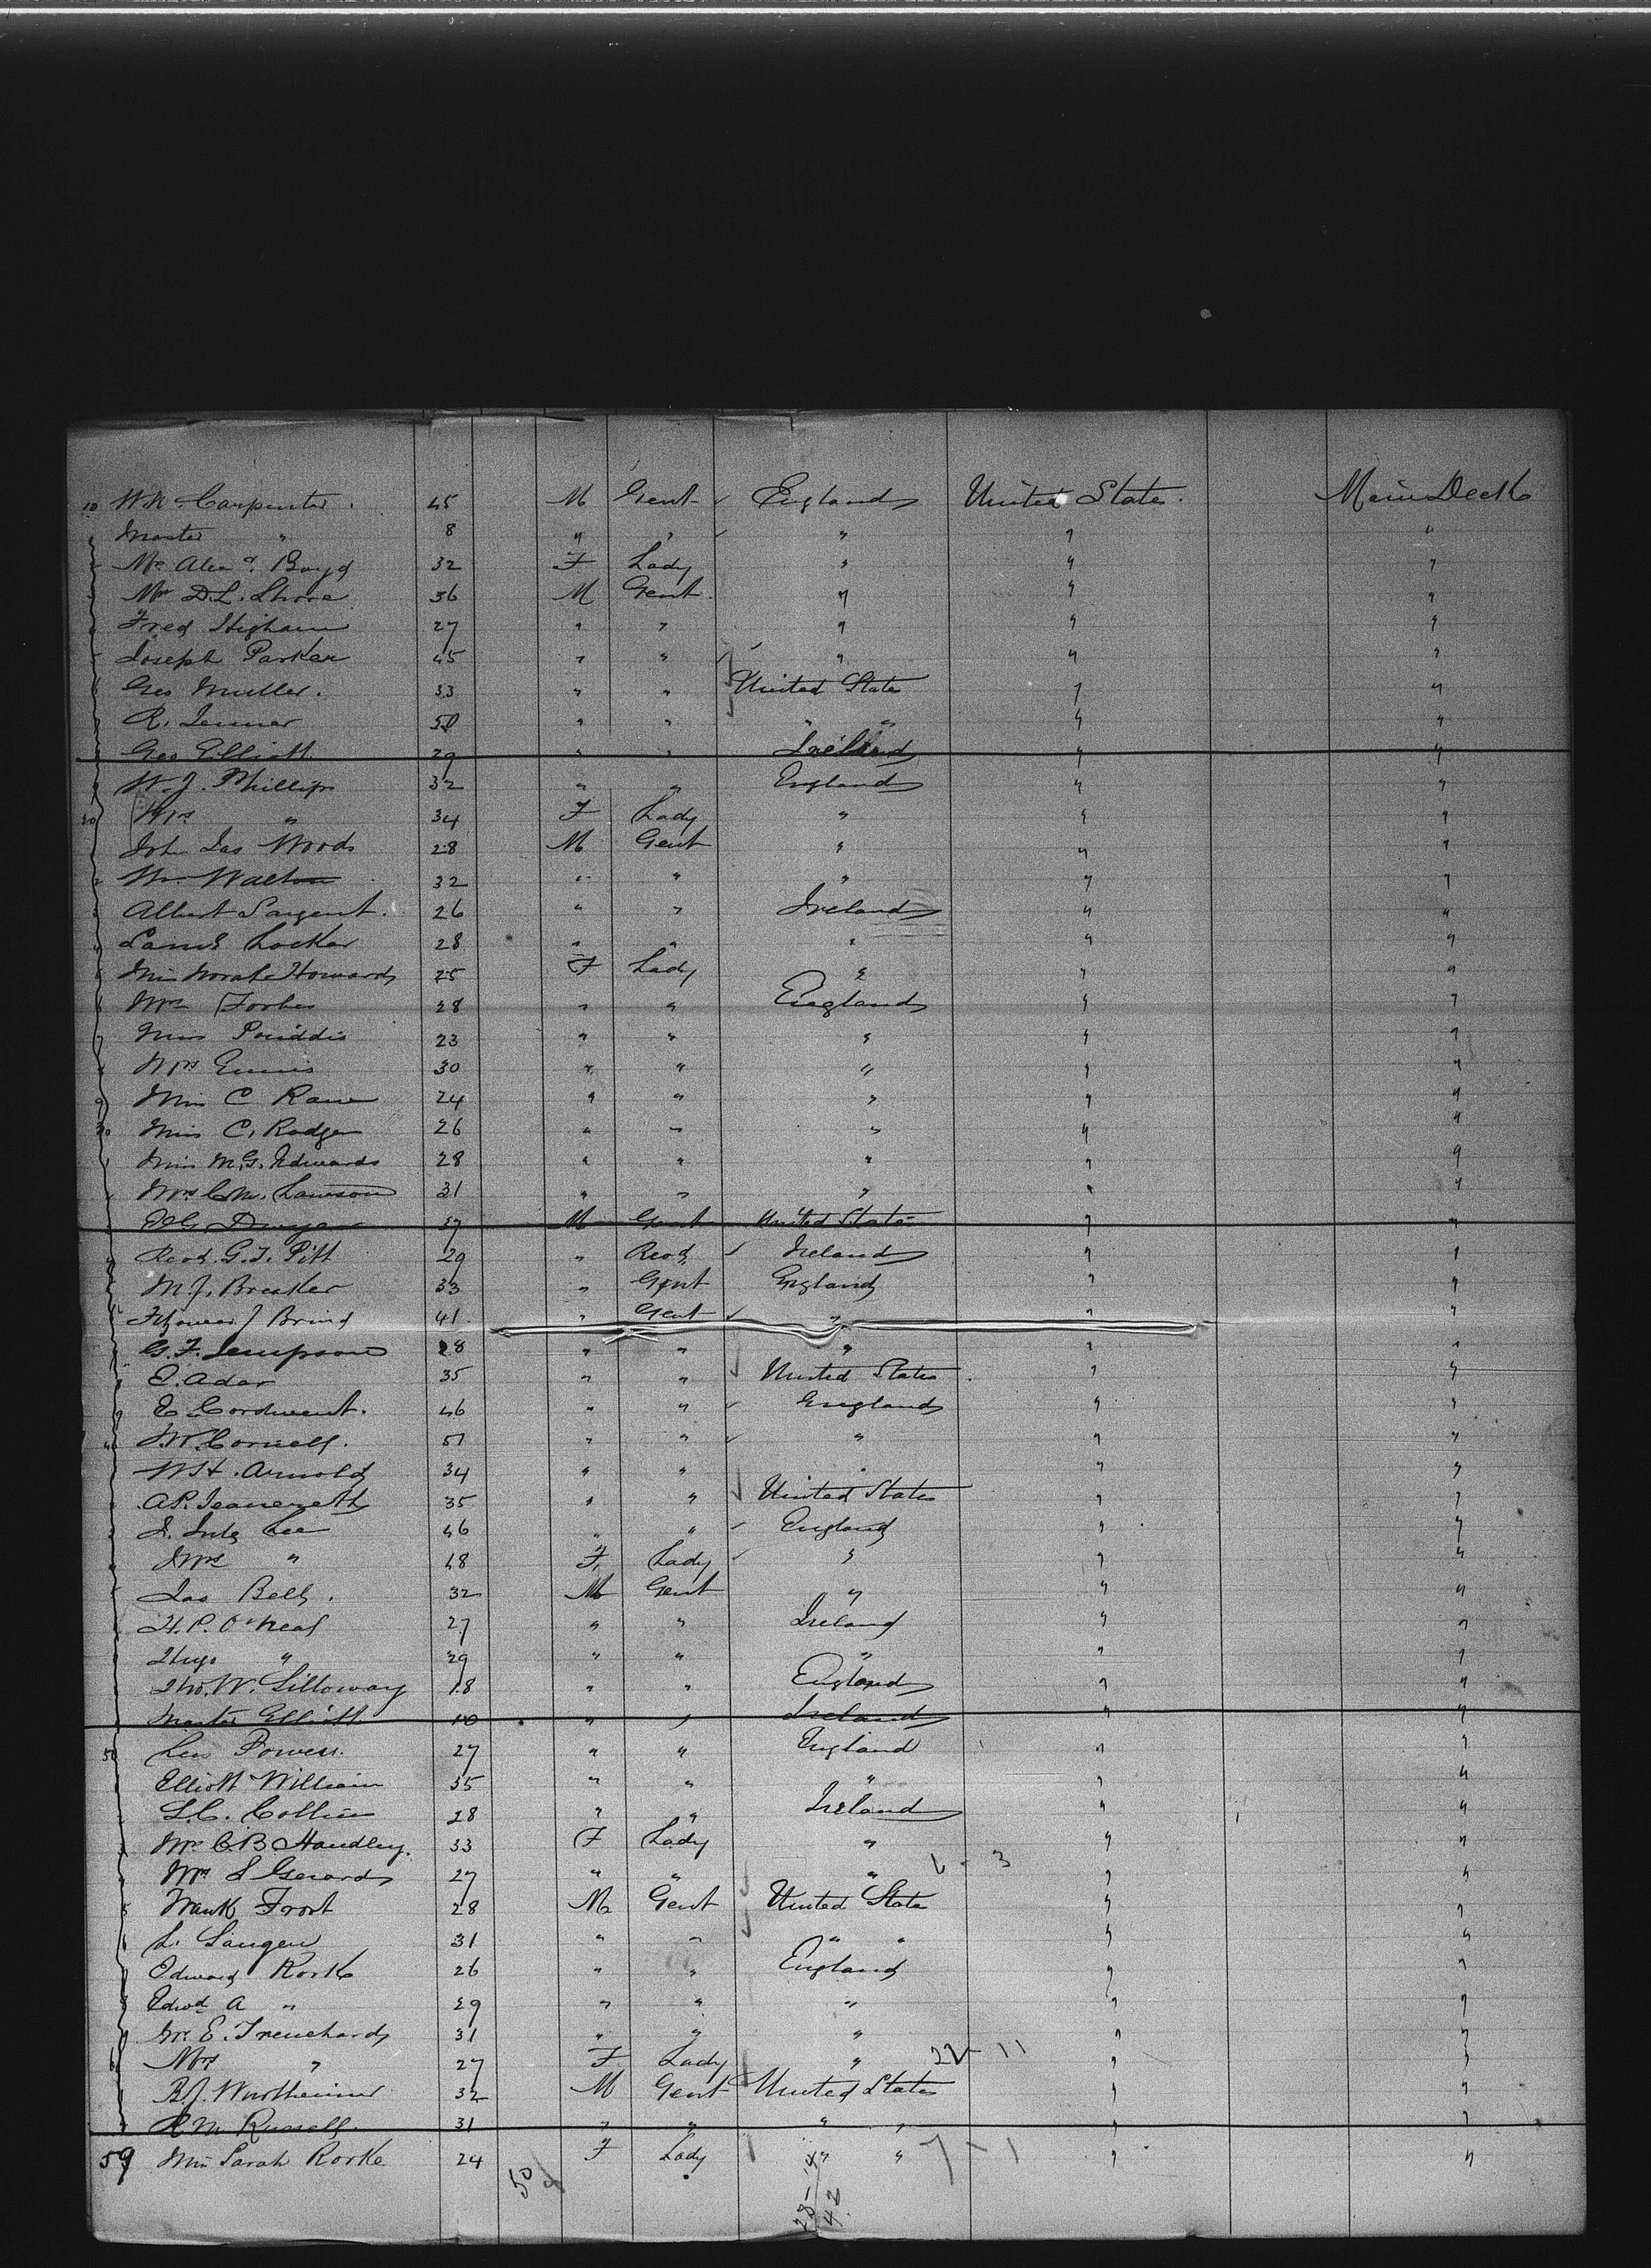 10 W.K. Carpenter. 45 M Gent England United States. Main Deck
Master " 8 " " " " "
Alex. Boyd 32 F Lady " " "
Mr D.L. Shore 36 M Gent. " " "
Fred Higham 27 " " " " "
Joseph Parker 45 " " " " "
Geo Muller. 33 " " United State " "
R. Jenner 50 " " " " " "
Geo Elliott 29 " " Ireland " "
W.J. Phillips 32 " " England " "
20 Mrs " 34 F Lady " " "
Joh Jas Woods 28 M Gent " " "
Wm Walton 32 " " " " "
Albert Sargent. 26 " " Ireland " "
Locker 28 " " " " "
Miss Norah Howard 25 F Lady " " "
Mrs Forbes 28 " " England " "
Miss 23 " " " " "
Mrs Ennis 30 " " " " "
9 Miss C Rane 24 " " " " "
30 Miss C. Rodger 26 " " " " "
Miss M.G. Edwards 28 " " " " "
Mrs C.M. Lawson 31 " " " " "
Dwyer 37 M Gent United States " "
Revd. G.T. Pitt 29 " Revd Ireland " "
M.J. Breaker 33 " Gent England " "
J Brind 41 " Gent " " "
G.F. Sempson 28 " " " " "
E. Ador 35 " " United States " "
E Cordwent. 46 " " England " "
J.W. Cornell. 51 " " " " "
W.H. Arnold 34 " " " " "
A.P. Jeanereth 35 " " United States " "
Lee 46 " " England " "
Mrs " 48 F Lady " " "
Jas Bell. 32 M Gent " " "
H.P. O'Neal 27 " " Ireland " "
Hugo " 29 " " " " "
Tho. W. Silloway 18 " " England " "
Master Elliott 10 " " Ireland " "
50 Powess. 27 " " England " "
Elliott William 35 " " " " "
S.C. Collins 28 " " Ireland " "
Mrs C.B Handley. 33 F Lady " " "
Mrs S Gerard 27 " " " 6 - 3 " "
Frank Frost 28 M Gent United State " "
L. Langen 31 " " " " " "
Edward Rork 26 " " England " "
Edwd A " 29 " " " " "
Mr. E. Trenchard 31 " " " " "
Mrs " 27 F Lady " 22 - 11 " "
B.J. Wurtheimer 32 M Gent United States " "
R M Russell. 31 " " " " " "
59 Miss Sarah Rorke 24 F Lady " " 7 - 1 " "
50
42